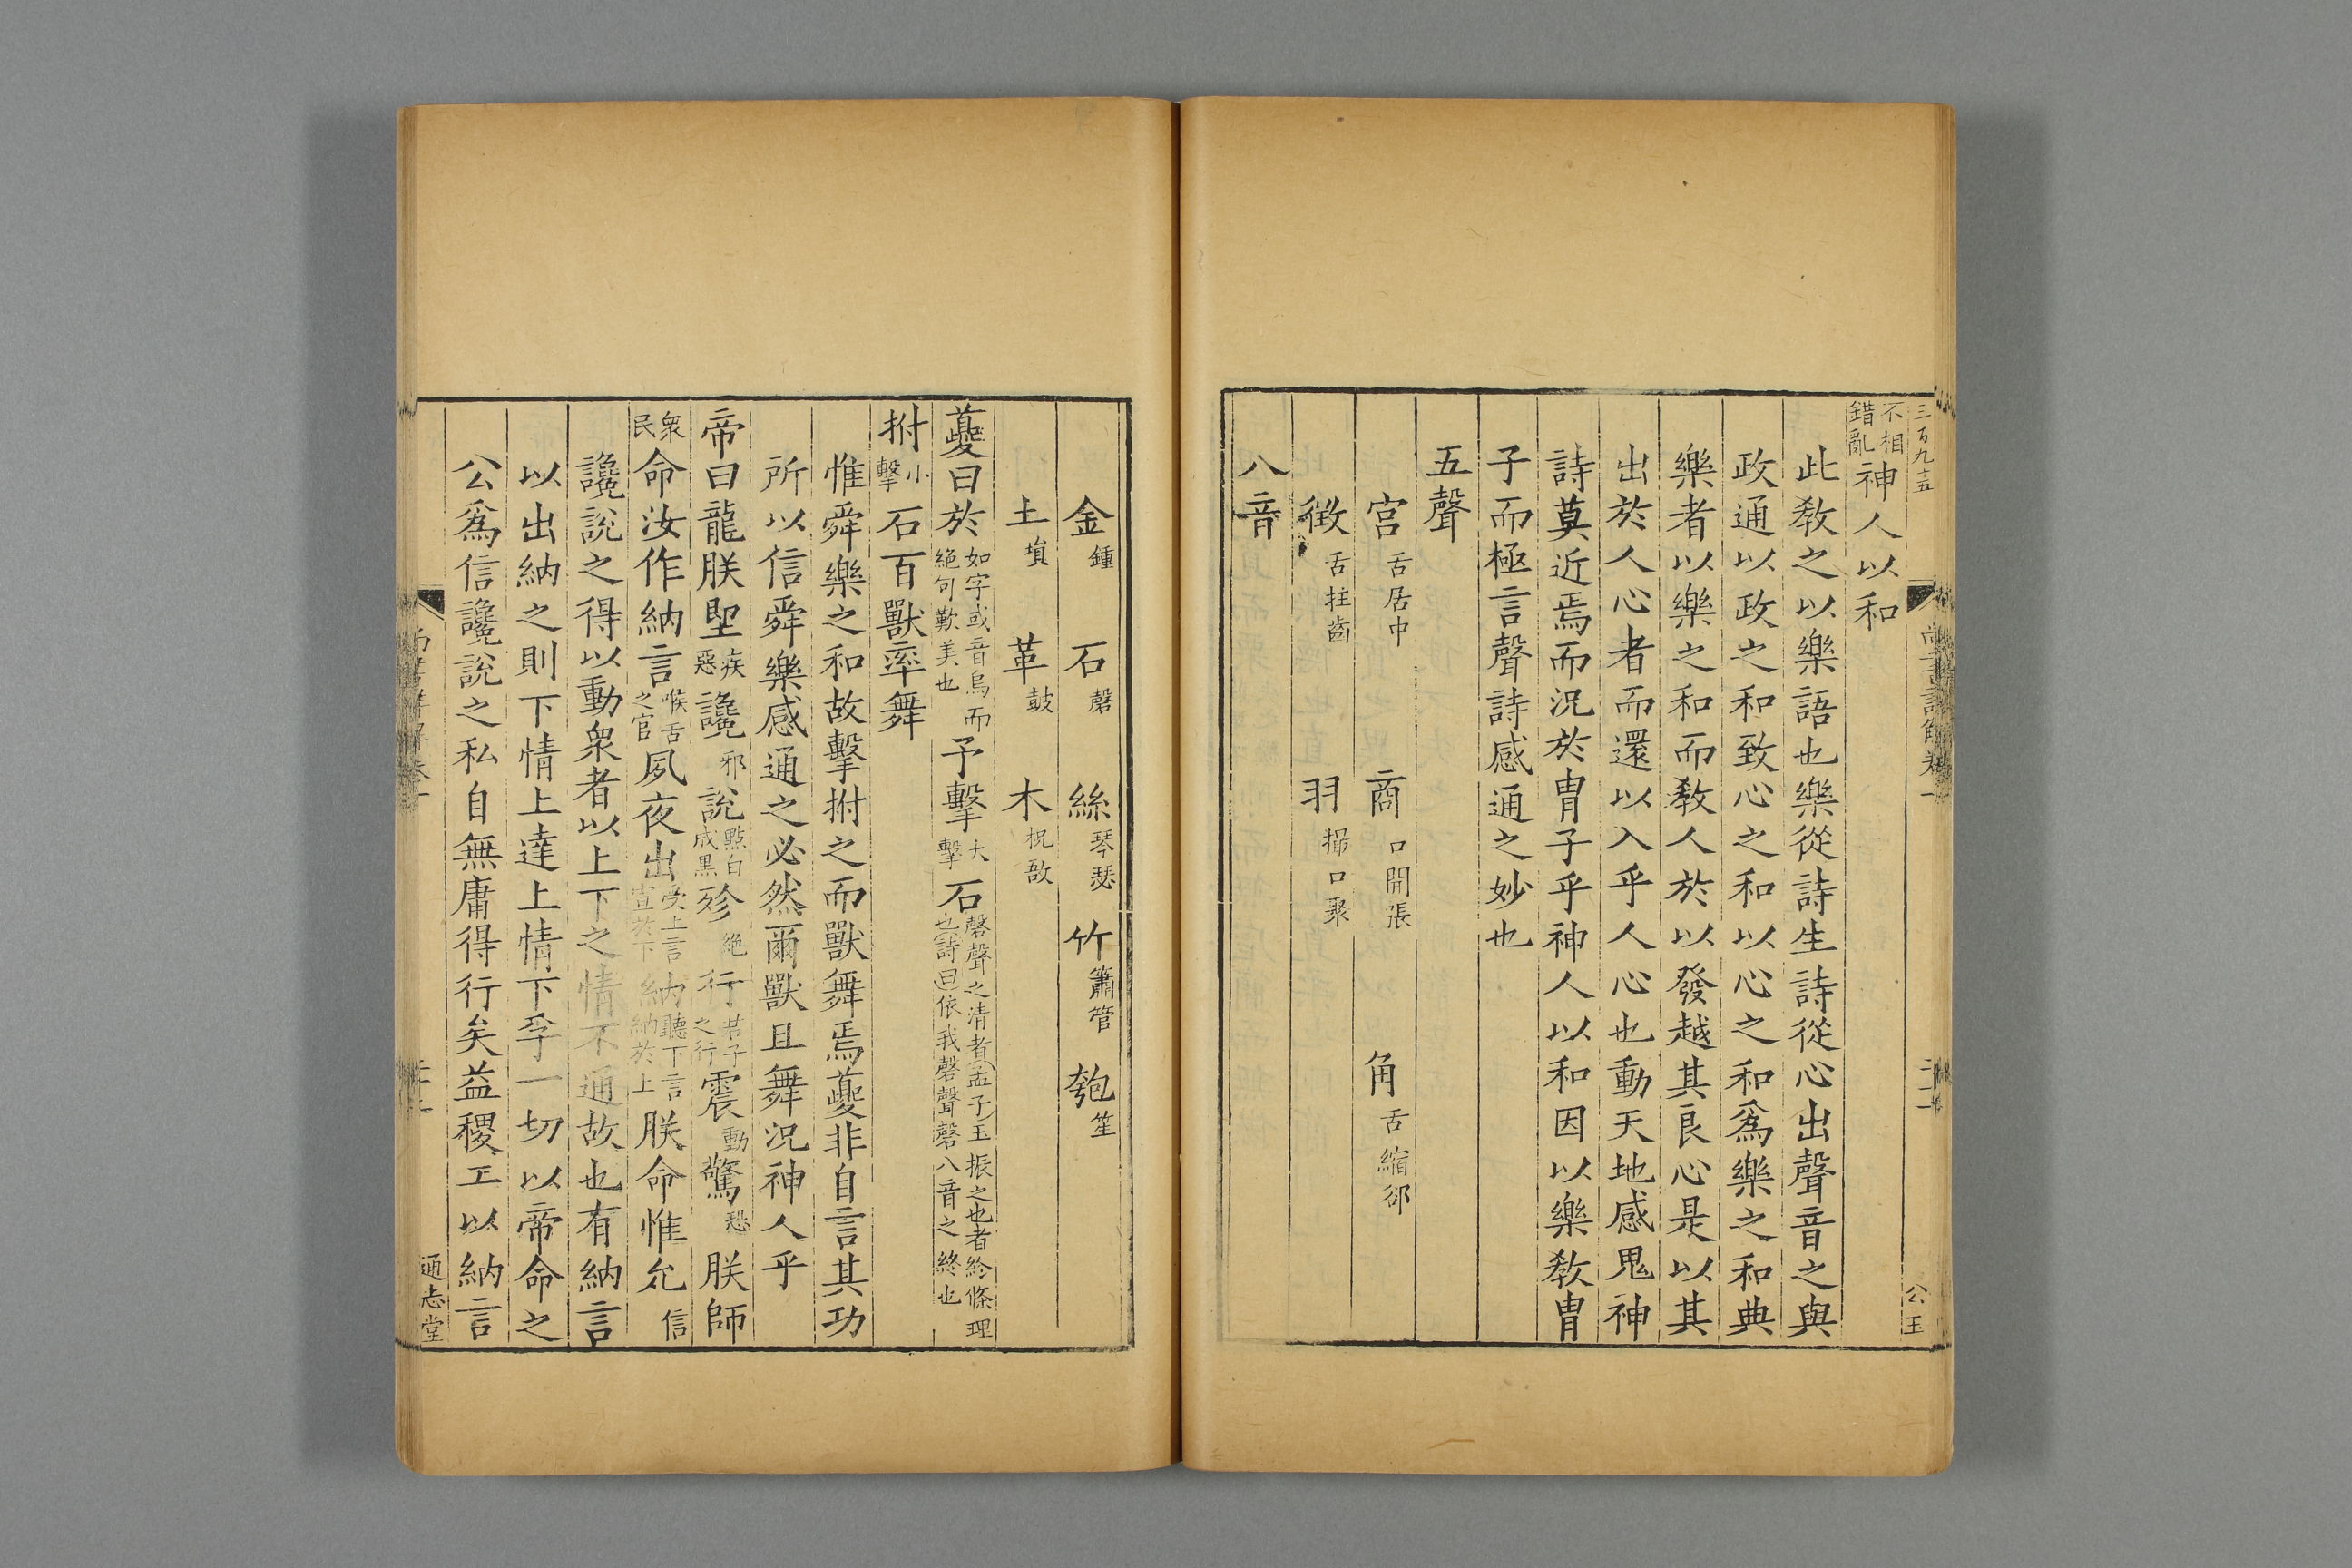 三百九十五
尚書詳解卷一
公玉
不相錯亂神人以和
此敎之以樂語也樂從詩生詩從心出聲音之與
政通以政之和致心之和以心之和爲樂之和典
樂者以樂之和而敎人於以發越其良心是以其
出於人心者而還以入乎人心也動天地感鬼神
詩莫近焉而況於冑子乎神人以和因以樂敎冑
子而極言聲詩感通之妙也
五聲
宮舌居中 商口開張 角舌縮郤
徵舌拄齒 羽撮口聚
八音
金鍾 石磬 絲琴瑟 竹簫管 匏笙
土塤 革鼓 木柷敔
夔曰於如字或音烏而絶句歎美也予擊大擊石磬聲之淸者孟子玉振之也者終條理也詩曰依我磬聲磬八音之終也
拊小擊石百獸率舞
惟舜樂之和故擊拊之而獸舞焉夔非自言其功
所以信舜樂感通之必然爾獸且舞況神人乎
帝曰龍朕堲疾惡讒邪說點白成黑殄絶行君子之行震動驚恐朕師
衆民命汝作納言喉舌之官夙夜出受上言宣於下納聽下言納於上朕命惟允信
讒說之得以動衆者以上下之情不通故也有納言
以出納之則下情上達上情下孚一切以帝命之
公爲信讒說之私自無庸得行矣益稷工以納言
尚書詳解卷一
通志堂